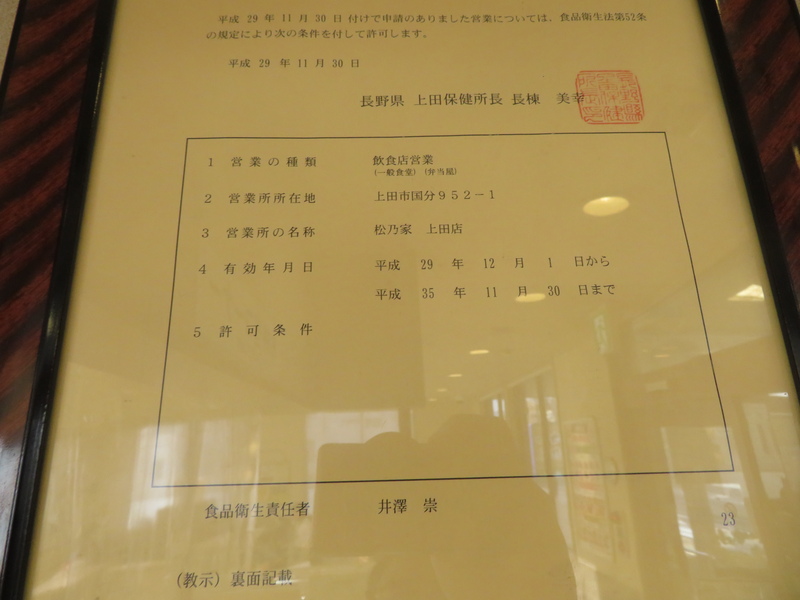 平成 29 年 11 月 30 日 付けで申請のありました営業については、食品衛生法第52条
の規定により次の条件を付して許可します。
平成 29 年 11 月 30 日
長野県 上田保健所長 長棟 美幸
1 営業の種類 飲食店営業
(一般食堂) (弁当屋)
2 営業所所在地 上田市国分952-1
3 営業所の名称 松乃家 上田店
4 有効年月日 平成 29 年 12 月 1 日から
平成 35 年 11 月 30 日まで
5 許可条件
食品衛生責任者 井澤 崇
23
(教示) 裏面記載